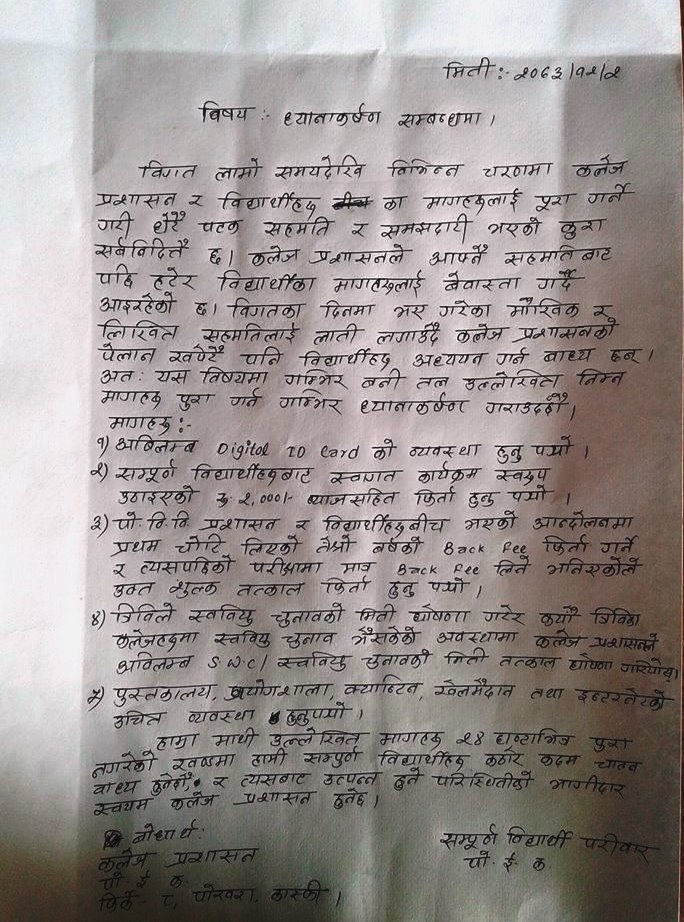 मिती :- २०६३/१२/२
विषय :- ध्यानाकर्षण सम्बन्धमा ।
विगत लामो समयदेखि विभिन्न चरणमा कलेज
प्रशासन र विद्यार्थीहरु बीच का मागहरुलाई पूरा गर्ने
गरी धेरै पटक सहमति र समझदारी भएको कुरा
सर्बविदितै छ। कलेज प्रशासनले आफ्नै सहमतिबाट
पछि हटेर विद्यार्थीका मागहरुलाई बेवास्ता गर्दै
आइरहेको छ। विगतका दिनमा भए गरेका मौखिक र
लिखित सहमतिलाई लाती लगाउँदै कलेज प्रशासनको
पेलान खपेरै पनि विद्यार्थीहरु अध्ययन गर्न बाध्य छन् ।
अतः यस विषयमा गम्भिर बनी तल उल्लेखित निम्न
मागहरु पुरा गर्न गम्भिर ध्यानाकर्षण गराउदछौं ।
मागहरु :-
१) अबिलम्ब Digital ID Card को व्यवस्था हुनु पर्‍यो ।
२) सम्पूर्ण विद्यार्थीहरुबाट स्वागत कार्यक्रम स्वरुप
उठाइएको रु. २,०००/- ब्याजसहित फिर्ता हुनु पर्‍यो ।
३) पो. वि. वि. प्रशासन र विद्यार्थीहरुबीच भएको आन्दोलनमा
प्रथम चोटि लिएको तेस्रो बर्षको Back Fee फिर्ता गर्ने
र त्यसपछिको परीक्षामा मात्र Back Fee लिने भनिएकोले
उक्त शुल्क तत्काल फिर्ता हुनु पर्‍यो ।
४) त्रिविले स्ववियु चुनावको मिती घोषणा गरेर कयौं त्रिविका
कलेजहरुमा स्ववियु चुनाव भैसकेको अवस्थामा कलेज प्रशासनले
अविलम्ब S.W.C/ स्ववियु चुनावको मिती तत्काल घोषणा गरियोस्।
५) पुस्तकालय, प्रयोगशाला, क्यान्टिन, खेलमैदान तथा इन्टरनेटको
उचित व्यवस्था हुनुपर्‍यो ।
हाम्रा माथी उल्लेखित मागहरु २४ घण्टाभित्र पुरा
नगरेको खण्डमा हामी सम्पुर्ण विद्यार्थीहरु कठोर कदम चाल्न
बाध्य हुनेछौं, र त्यसबाट उत्पन्न हुने परिस्थितीको भागीदार
स्वयम कलेज प्रशासन हुनेछ ।
बोधार्थ :
कलेज प्रशासन
पो. ई. क.
८, पोखरा, कास्की ।
सम्पूर्ण विद्यार्थी परीवार
पो. ई. क.